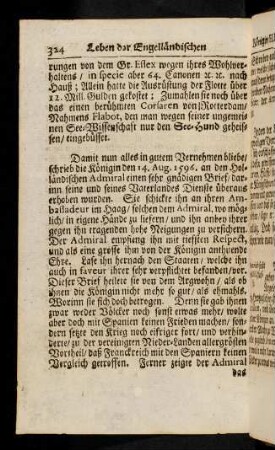 324 Leben der Engelländischen
rungen von dem Gr. Essex wegen ihres Wohlver-
haltens / in specie aber 64. Canonen ꝛc. ꝛc. nach
Hauß; Allein hatte die Ausrüstung der Flotte über
12. Mill. Gulden gekostet: Zumahlen sie noch über
das einen berühmten Corsaren von Rotterdam /
Nahmens Flabot, den man wegen seiner ungemei-
nen See-Wissenschafft nur den See-Hund geheiß-
sen / eingebüsset.
Damit nun alles in gutem Vernehmen bliebe /
schrieb die Königin den 14. Aug. 1596. an den Hol-
ländischen Admiral einen sehr gnädigen Brief / dar-
inn seine und seines Vaterlandes Dienste überaus
erhoben wurden. Sie schickte ihn an ihren Am-
bassadeur im Haag / solchen dem Admiral, wo mög-
lich / in eigene Hände zu liefern / und ihn anbey ihrer
gegen ihn tragenden hohe Neigungen zu versichern.
Der Admiral empfieng ihn mit tieffsten Respect,
und als eine grosse ihn von der Königin anthuende
Ehre. Lase ihn hernach den Staaten / welche ihn
auch in faveur ihrer sehr verpflichtet befanden / vor.
Dieser Brief heilete sie von dem Argwohn / als ob
ihnen die Königin nicht mehr so gut / als ehmahls.
Worinn sie sich doch betrogen. Denn sie gab ihnen
zwar weder Völcker noch sonst etwas mehr / wolte
aber doch mit Spanien keinen Frieden machen / son-
dern setzte den Krieg noch eifriger fort / und verhin-
derte / zu der vereinigten Nieder-Landen allergrösten
Vortheil / daß Franckreich mit den Spaniern keinen
Vergleich getroffen. Ferner zeigte der Admiral
das